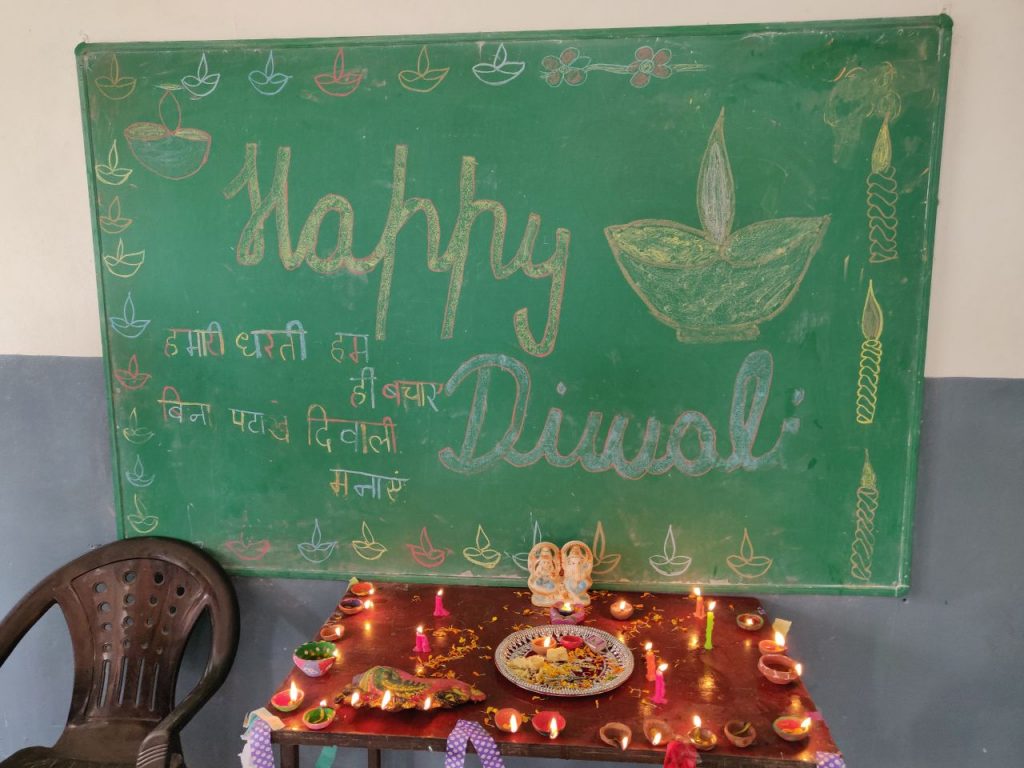 Happy
Diwali
हमारी धरती हम
ही बचाए
बिना पटाखे दिवाली
मनाएं